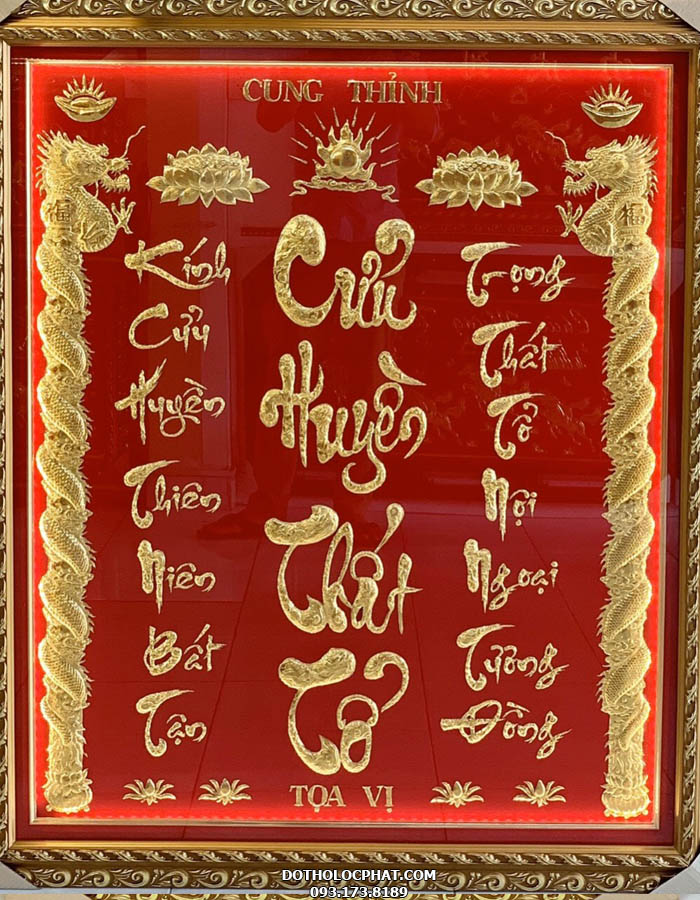 CUNG THỈNH
Kính
Cửu
Huyền
Thiên
Niên
Bất
Tận
Cửu
Huyền
Thất
Tổ
Trọng
Thất
Tổ
Nội
Ngoại
Tường
Đồng
TỌA VỊ
福
福
DOTHOLOCPHAT.COM
093.173.8189